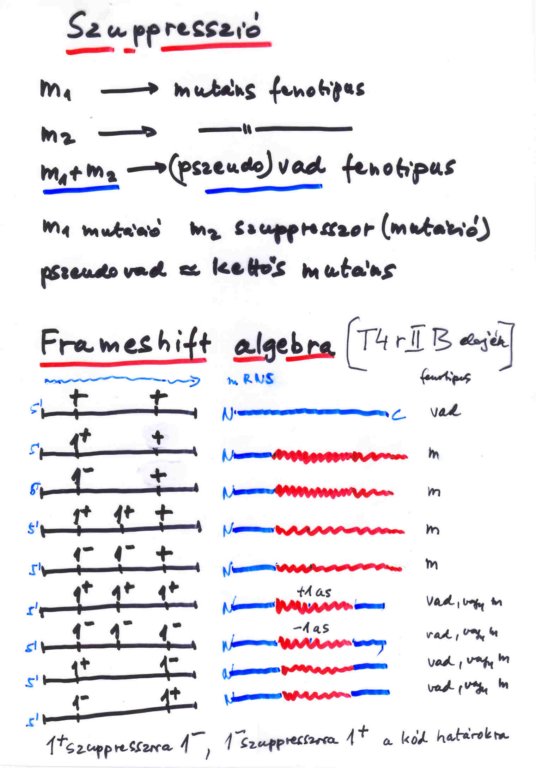 Szuppresszió
m1 → mutáns fenotípus
m2 → —"—
m1+m2 → (pszeudo)vad fenotipus
m1 mutáció m2 szuppresszor (mutáció)
pszeudovad ≈ kettős mutáns
Frameshift algebra [T4 r II B elején]
mRNS fenotipus
5' + + N C vad
5' 1+ + N m
5' 1- + N m
5' 1+ 1+ + N m
5' 1- 1- + N m
5' 1+ 1+ 1+ N +1 as vad, vagy m
5' 1- 1- 1- N -1 as vad, vagy m
5' 1+ 1- N vad, vagy m
5' 1- 1+ N vad, vagy m
1+ szuppresszora 1-, 1- szuppresszora 1+ a kód határokra